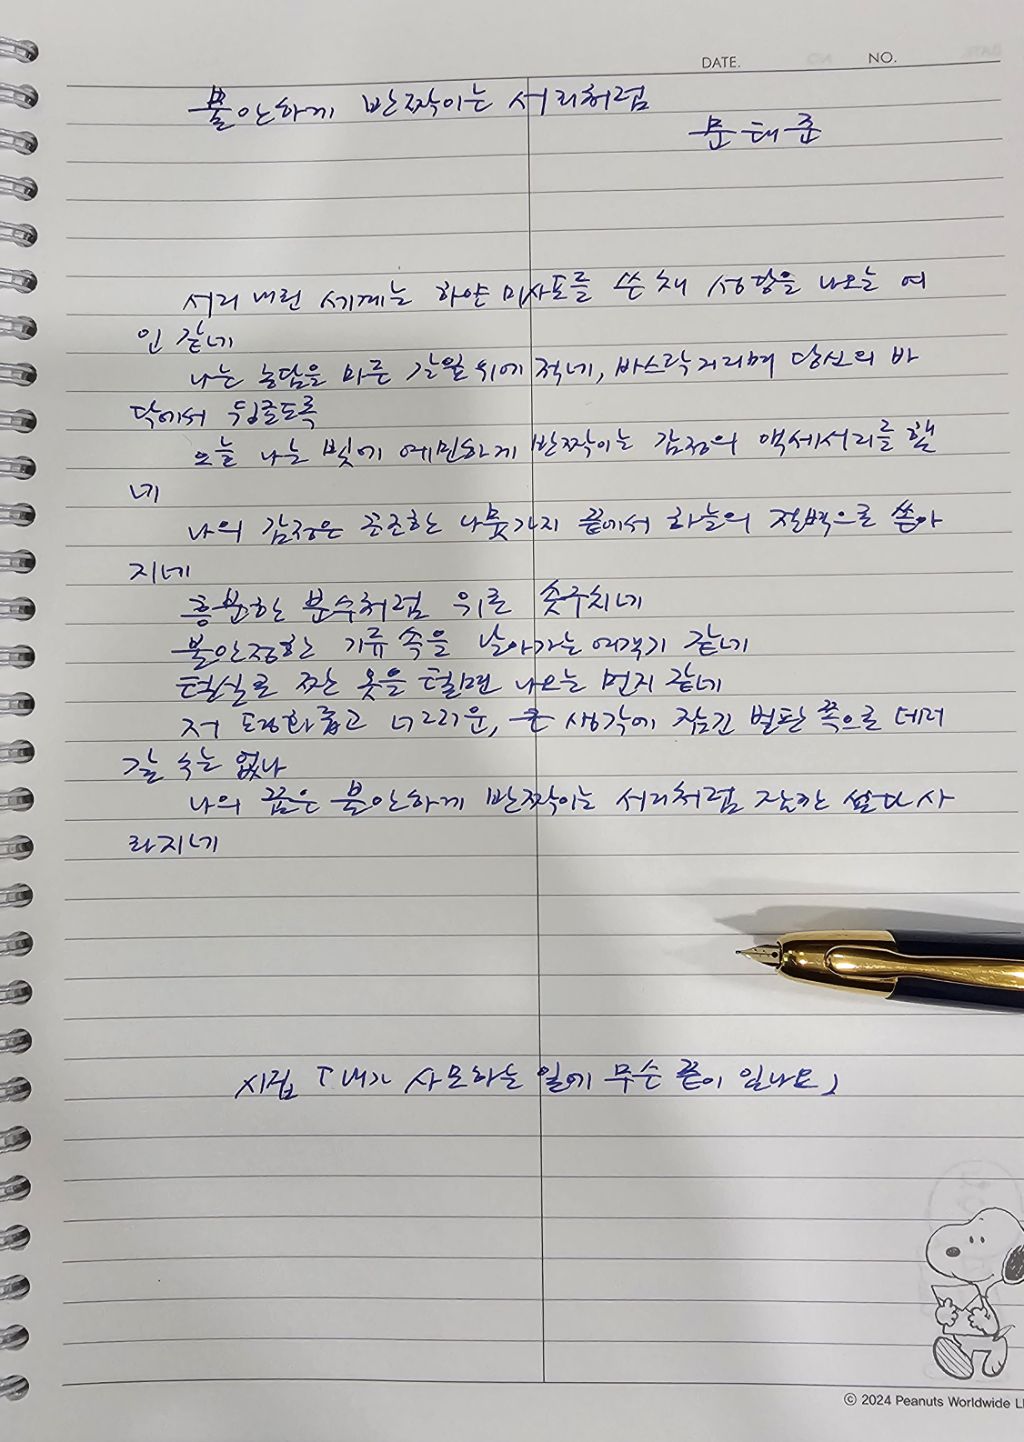 DATE. NO.
불안하게 반짝이는 서리처럼
문태준
서리 내린 세계는 하얀 미사포를 쓴 채 성당을 나오는 여
인 같네
나는 농담을 마른 갈잎 위에 적네, 바스락거리며 당신의 바
닥에서 뒹굴도록
오늘 나는 빛에 예민하게 반짝이는 감정의 액세서리를 했
네
나의 감정은 곤조한 나뭇가지 끝에서 하늘의 절벽으로 쏟아
지네
흥분한 분수처럼 위로 솟구치네
불안정한 기류 속을 날아가는 여객기 같네
털실로 짠 옷을 털면 나오는 먼지 같네
저 평화롭고 너그러운, 큰 생각에 잠긴 벌판 쪽으로 데려
갈 수는 없나
나의 꿈은 불안하게 반짝이는 서리처럼 잠깐 섰다 사
라지네
시집 「내가 사모하는 일에 무슨 끝이 있나요」
© 2024 Peanuts Worldwide LL